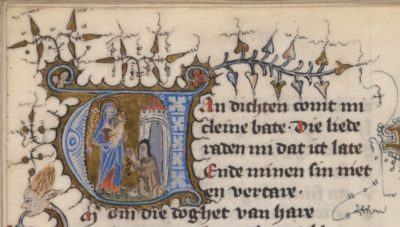 Van dichten comt mi
cleine bate · Die liede
raden mi dat ict late
Ende minen sin niet
en vertare ·
om die doghet van hare